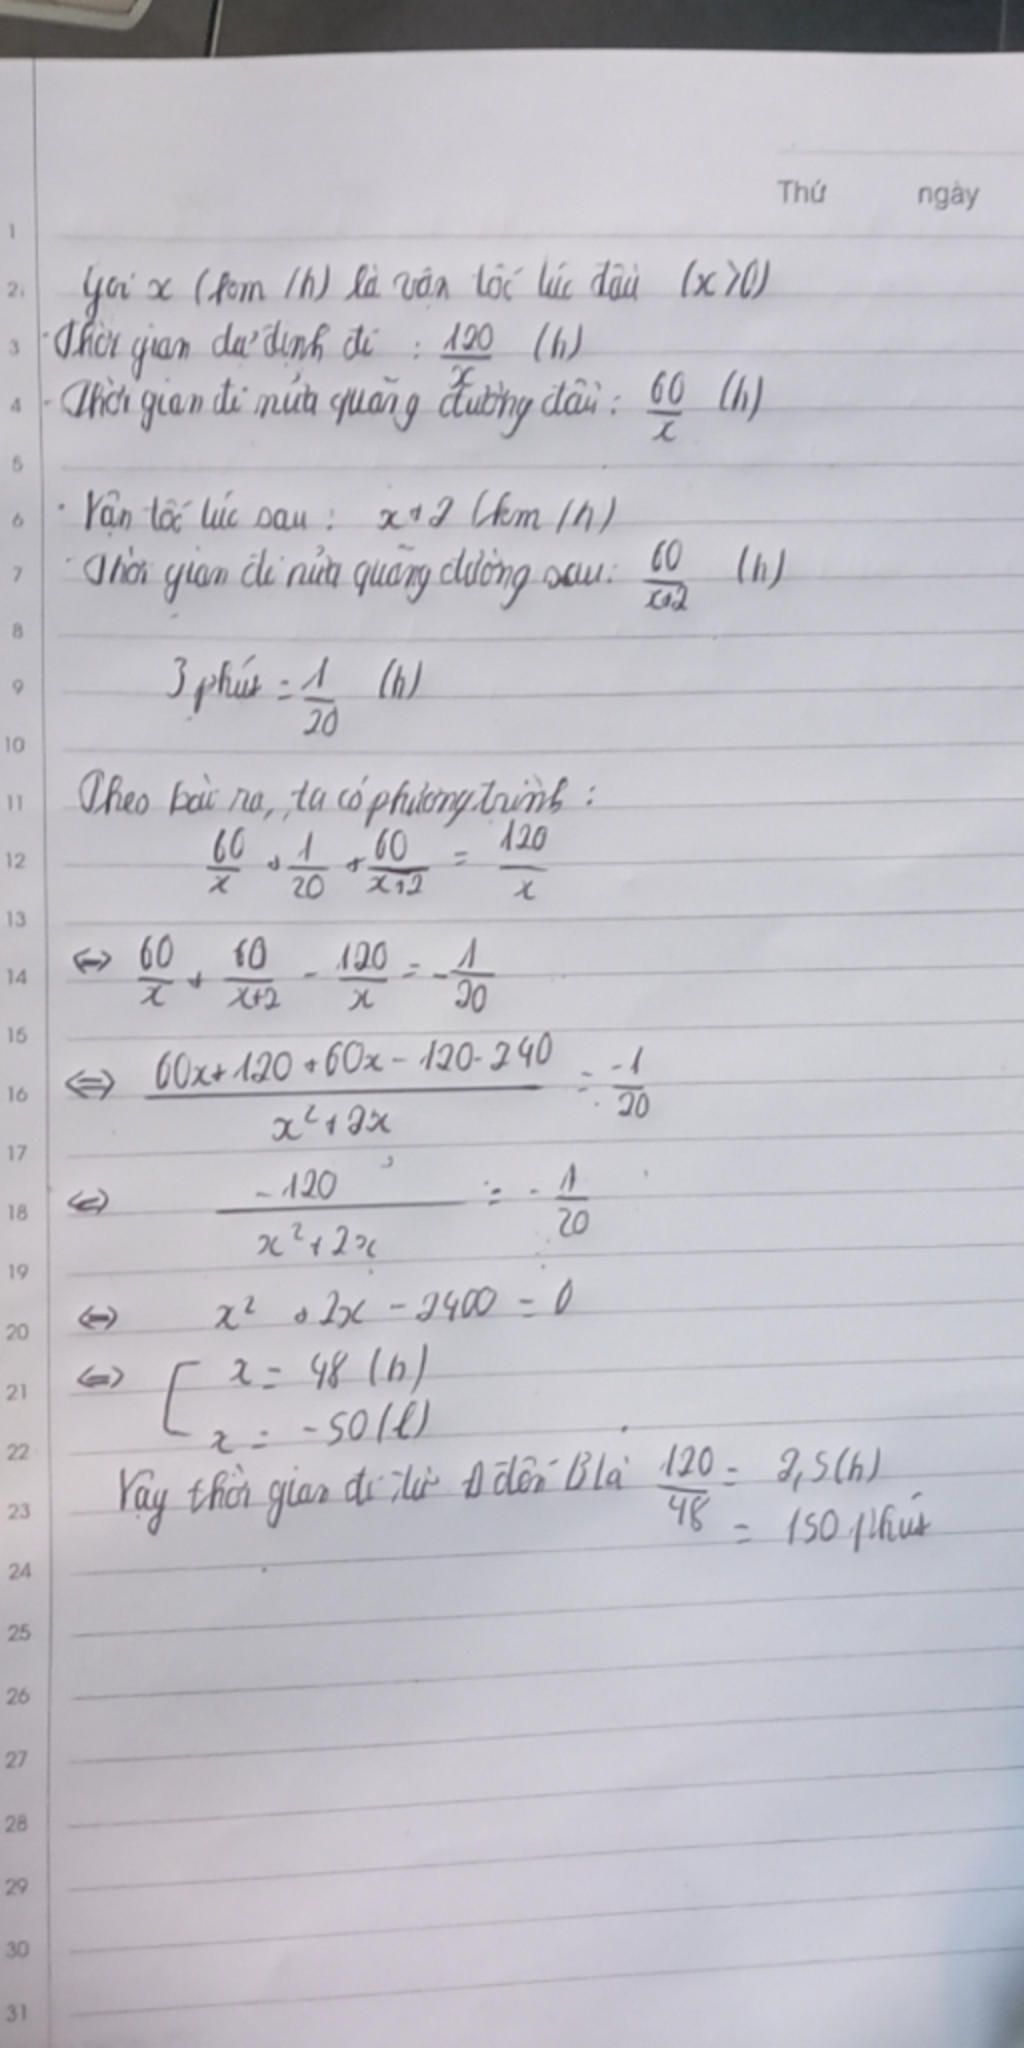 Thứ ngày
1
2 Gọi x (km/h) là vận tốc lúc đầu (x>0)
3 - Thời gian dự định đi : 120/x (h)
4 - Thời gian đi nửa quãng đường đầu: 60/x (h)
5
6 . Vận tốc lúc sau: x+2 (km/h)
7 - Thời gian đi nửa quãng đường sau: 60/x+2 (h)
8
9 3 phút = 1/20 (h)
10
11 Theo bài ra, ta có phương trình:
12 60/x + 1/20 + 60/x+2 = 120/x
13
14 ⇔ 60/x + 60/x+2 - 120/x = -1/20
15
16 ⇔ 60x+120+60x-120-240/x²+2x = -1/20
17
18 ⇔ -120/x²+2x = -1/20
19
20 ⇔ x² + 2x - 2400 = 0
21 ⇔ [ x = 48 (h)
22 x = -50 (l)
23 Vậy thời gian đi từ A đến B là 120/48 = 2,5(h)
= 150 phút
24
25
26
27
28
29
30
31